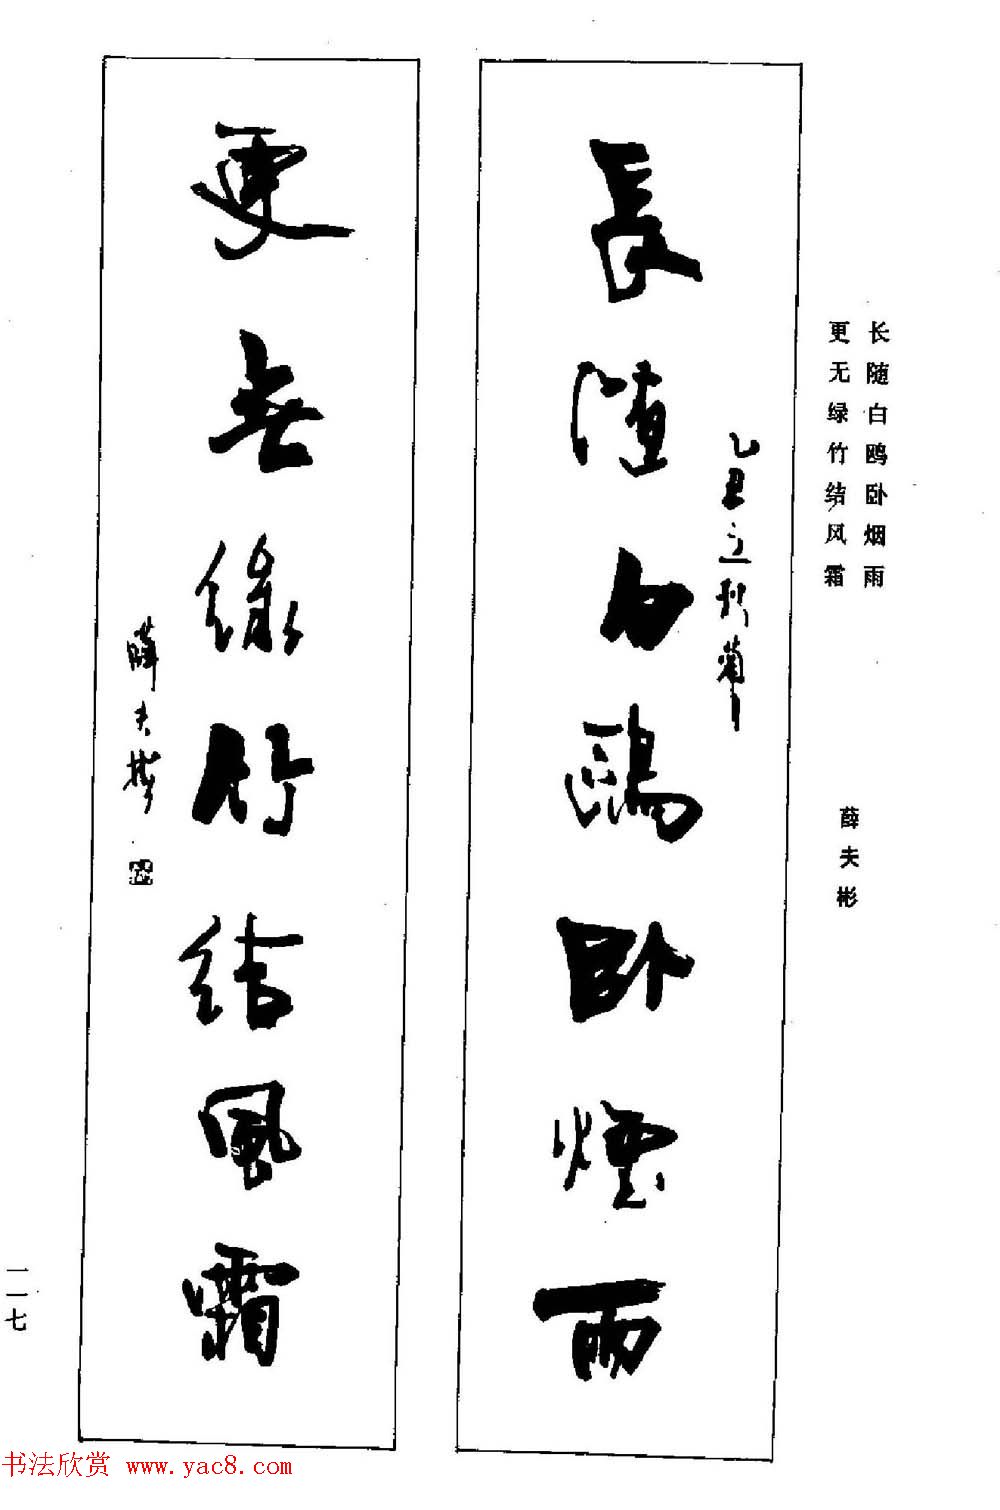 长随白鸥卧烟雨
更无绿竹结风霜
薛夫彬
乙丑立秋
長随白鷗卧煙雨
更無緑竹結風霜
薛夫彬
一一七
书法欣赏 www.yac8.com